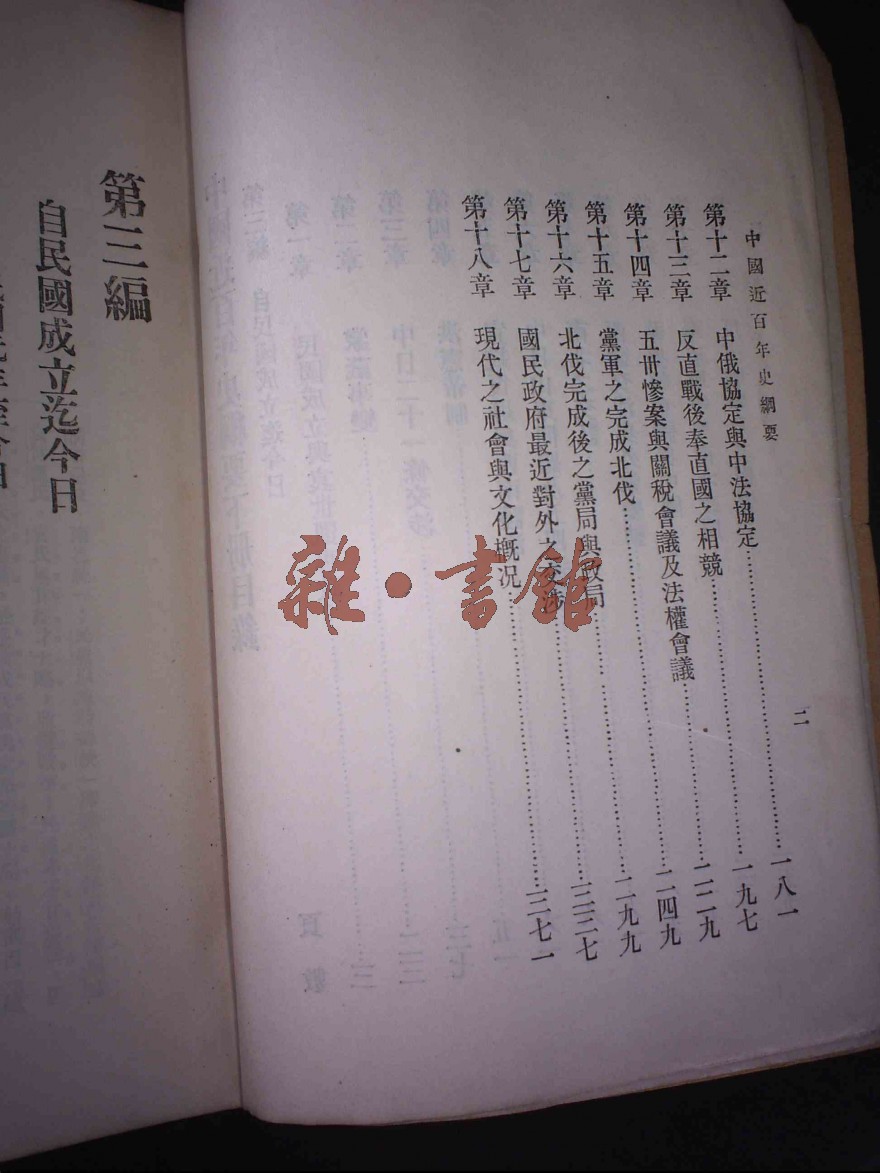 中國近百年史綱要 二
第十二章 中俄協定與中法協定……一八一
第十三章 反直戰後奉直國之相競……一九七
第十四章 五卅慘案與關稅會議及法權會議……二二九
第十五章 黨軍之完成北伐……二四九
第十六章 北伐完成後之黨局與政局……二九九
第十七章 國民政府最近對外之交涉……三三七
第十八章 現代之社會與文化概況……三七一
第三編
自民國成立迄今日
雜·書館